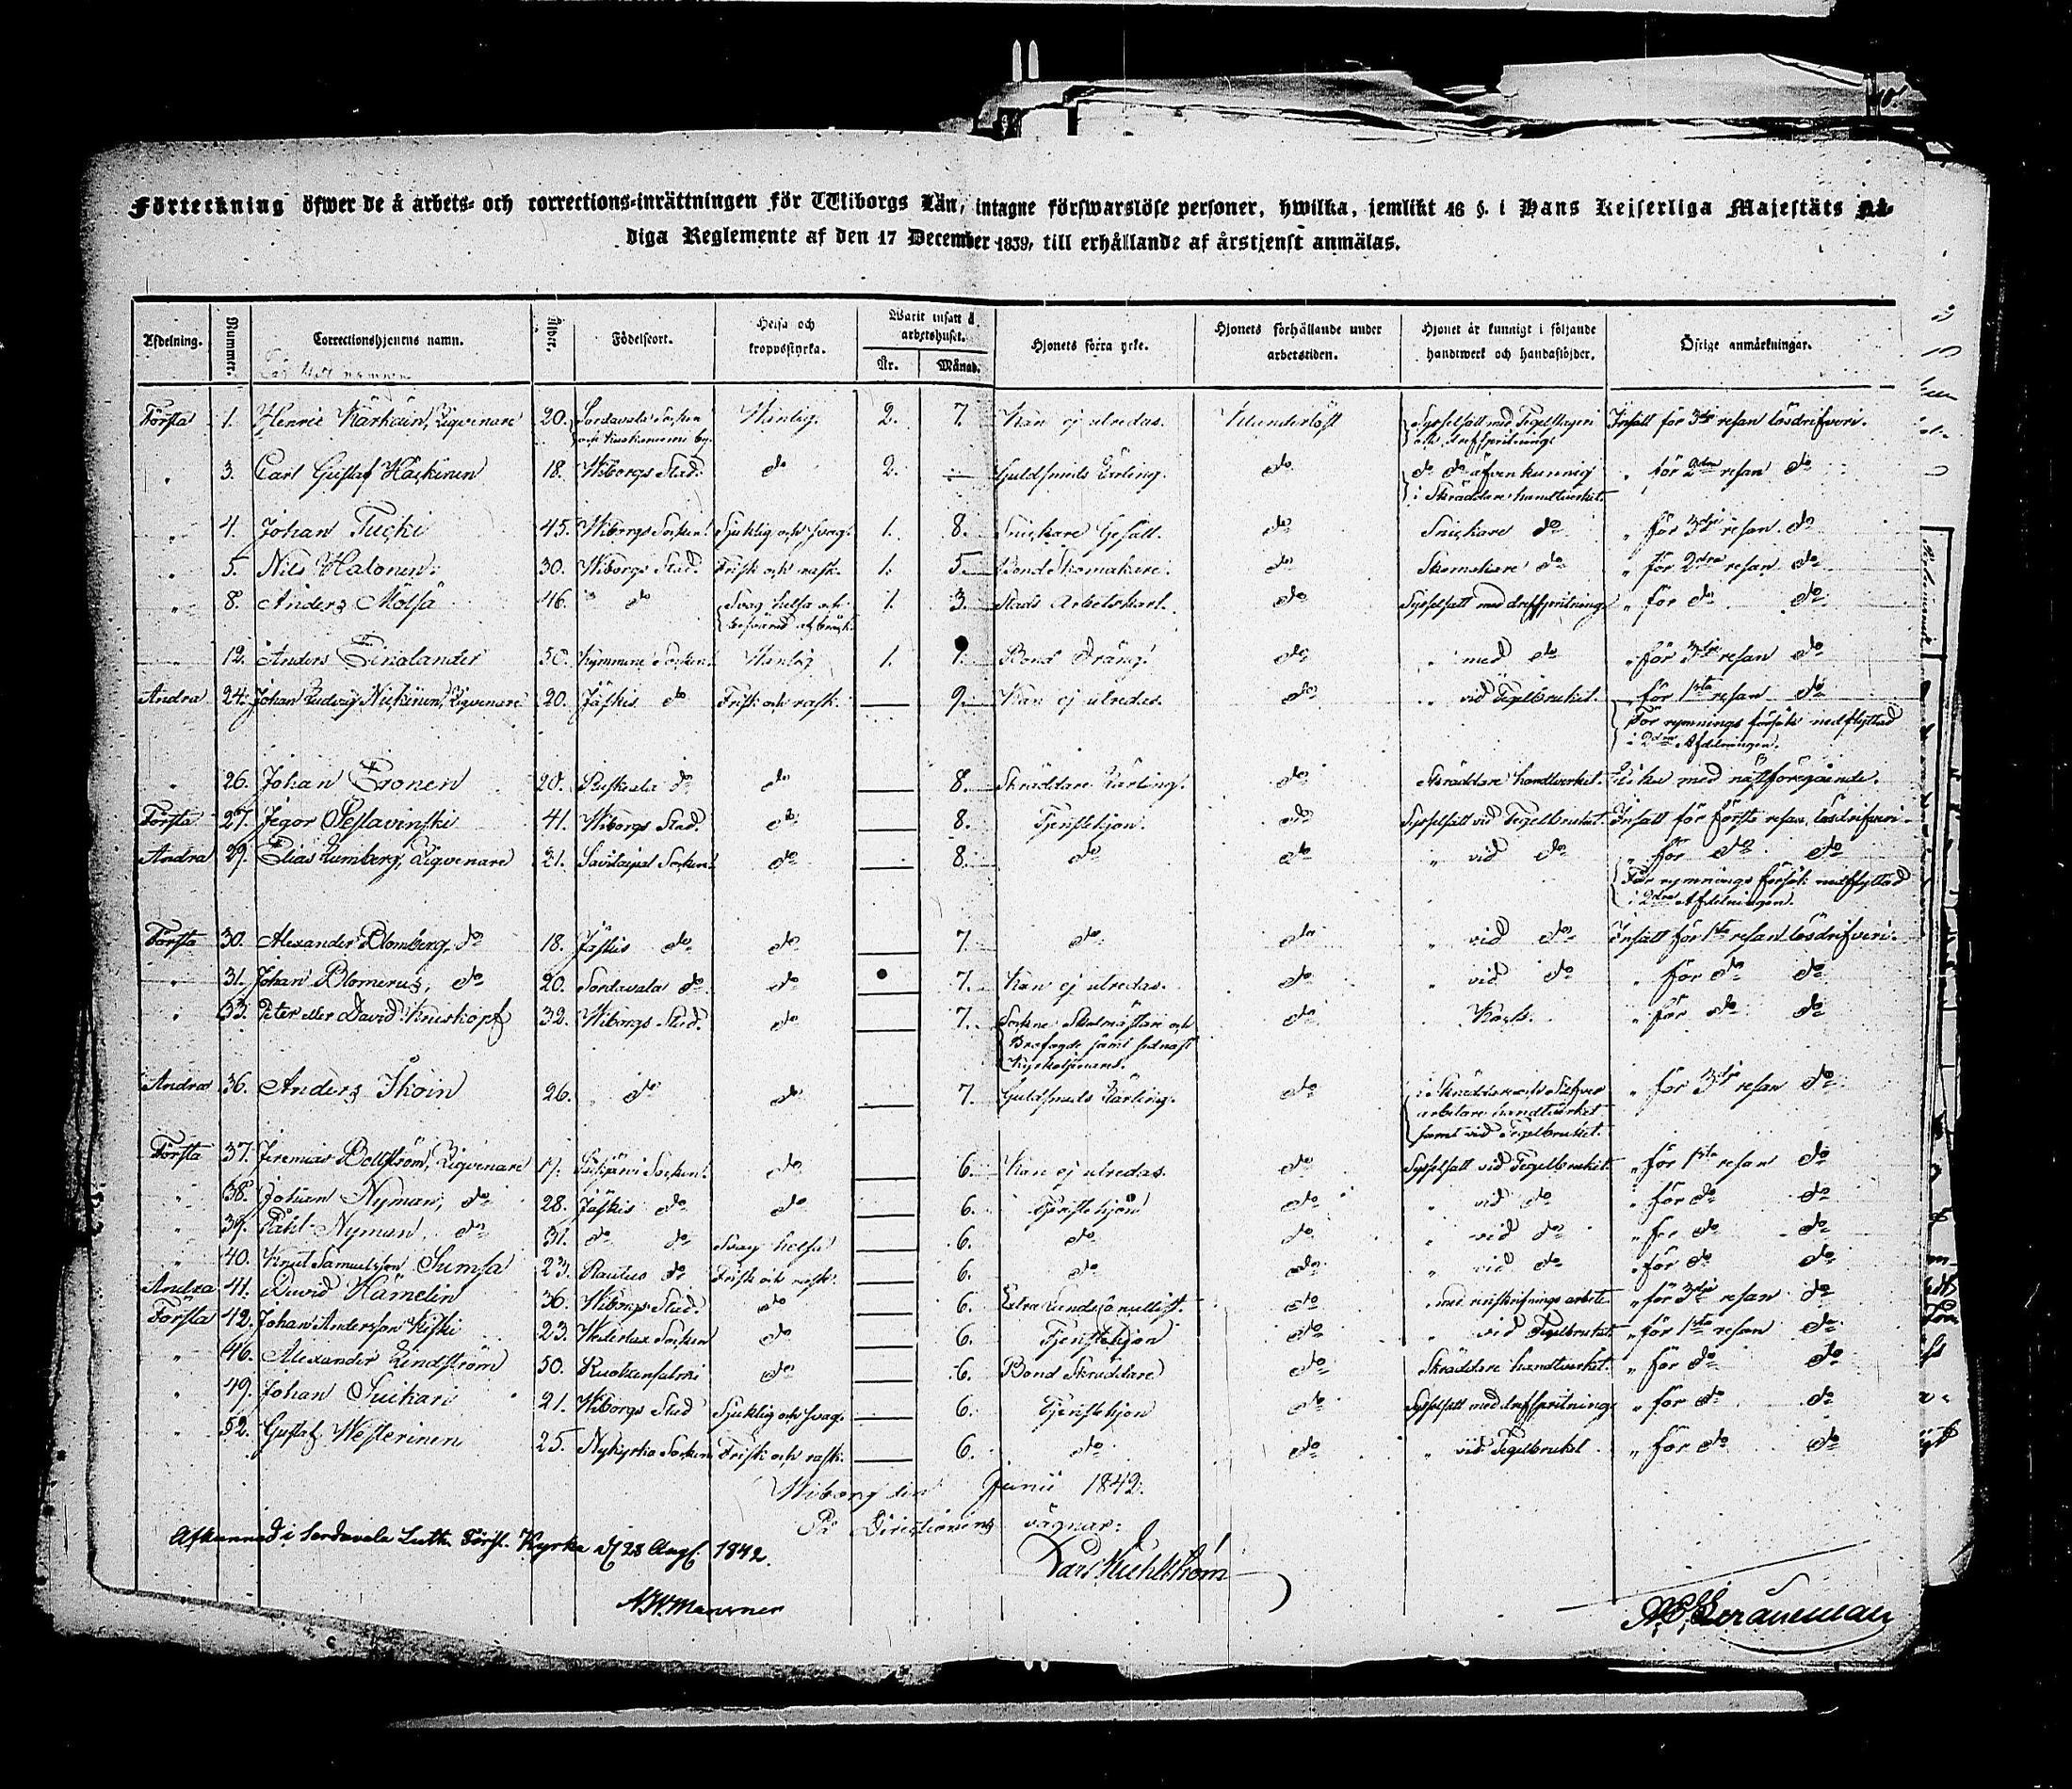 Förteckning öfwer de å arbets- och corrections-inrättningen för Wiborgs Län, intagne förswarslöse personer, hwilka, jemlikt 46 §. i Hans Kejserliga Majestäts Nå-
diga Reglemente af den 17 December 1839, till erhållande af årstjenst anmälas.
Afdelning. Nummer. Correctionshjonens namn. Ålder. Födelseort. Helsa och kroppsstyrka. Warit insatt å arbetshuset. År. Månad. Hjonets förra yrke. Hjonets förhållande under arbetstiden. Hjonet är kunnigt i följande handtwerk och handaslöjder. Öfrige anmärkningar.
Första 1. Henric Kärhäin, Ziguenare 20. Sordavala Socken Manlig. 2. 7. Kan ej utredas. Klanderlöst Sysselsatt med Tegelslageri Insatt för 3dje resan lösdrifveri.
och drefspritning.
" 3. Carl Gustaf Häckinen 18. Wiborgs Stad. do 2. — Guldsmeds Lärling. do do do äfven kunnig " för 2dra resan do
i Skräddare handtverket.
" 4. Johan Tucki 45. Wiborgs Socken. Sjuklig och svag. 1. 8. Snickare Gesäll. do Snickare do " för 3dje resan do
" 5. Nils Halonen. 30. Wiborgs Stad. Frisk och rask. 1. 5. Bond Skomakare. do Skomakare do " för 2dra resan do
" 8. Anders Mölsä 46. " do Svag helsa och 1. 3. Stads Arbetskarl. do Sysselsatt med drefspritning " för do do
besvärad af bråck.
" 12. Anders Enalander 50. Kymmene Socken. Manlig 1. 1. Bond Dräng. do " med do " för 3dje resan do
Andra 24. Johan Ludvig Nickinen, Ziguenare 20. Jäskis do Frisk och rask. — 9. Kan ej utredas. do " vid Tegelbruket. " för 1sta resan do
För rymnings försök nedflyttad
i 2dra Afdelningen.
" 26. Johan Eronen 20. Ruskeala do do — 8. Skräddare Lärling. do Skräddare handtverket. Lika med nästföregående.
Första 27. Jegor Seslavinski 41. Wiborgs Stad. do — 8. Tjenstehjon. do Sysselsatt vid Tegelbruket. Insatt för första resan lösdrifveri.
Andra 29. Elias Lumberg, Ziguenare 21. Savitaipal Socken. do — 8. do do " vid do " för do do
För rymnings försök nedflyttad
i 2dra Afdelningen.
Första 30. Alexander Blomberg, do 18. Jäskis do do — 7. do do " vid do Insatt för 1sta resan lösdrifveri.
" 31. Johan Blomerus, do 20. Sordavala do do — 7. Kan ej utredas. do " vid do " för do do
" 33. Peter eller David Kruskopf 32. Wiborgs Stad. do — 7. Sockne Skolmästare och do " för do do
Brofogde samt sednast
Kyrkotjenare.
Andra 36. Anders Ikoin 26. do do — 7. Guldsmeds Lärling. do i Skräddare och Silfver " för 3dje resan do
arbetare handtverket
samt vid Tegelbruket.
Första 37. Jeremias Bollström, Ziguenare Socken. do — 6. Kan ej utredas. do Sysselsatt vid Tegelbruket " för 1sta resan do
" 38. Johan Nyman, do 28. Jäskis do do — 6. Tjenstehjon do " vid do " för do do
" 39. Påhl Nyman, do 31. do do Svag helsa — 6. do do " vid do " för do do
" 40. Knut Samuelsson Sumsa 23. Rautus do Frisk och rask. — 6. do do " vid do " för do do
Andra 41. David Hämelin 36. Wiborgs Stad. do — 6. Extra Landt Canullist. do med renskrifnings arbete " för 3dje resan do
Första 42. Johan Andersson Kiski 23. Wederlax Socken do — 6. Tjenstehjon do " vid Tegelbruket " för 1sta resan do
" 46. Alexander Lindström 50. Ruokensalmi do — 6. Bond Skräddare do Skräddare handtverket. " för do do
" 49. Johan Suikari 21. Wiborgs Stad Sjuklig och svag. — 6. Tjenstehjon do Sysselsatt med drefspritning " för do do
" 52. Gustaf Westerinen 25. Nykyrko Socken Frisk och rask. — 6. do do " vid Tegelbruket. " för do do
Wiborg den Junii 1842.
På Directionens vägnar:
Afkunnad i Sordavala Luth. Förs. Kyrka d 28 Aug. 1842.